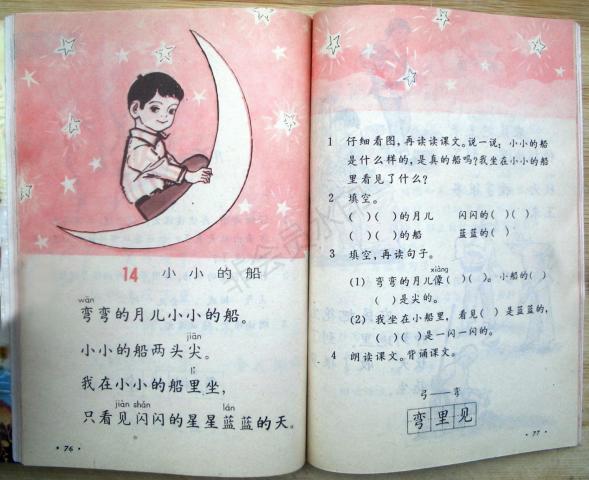 14 小小的船
wān
弯弯的月儿小小的船。
jiān
小小的船两头尖。
lǐ
我在小小的船里坐,
jiàn shǎn lán
只看见闪闪的星星蓝蓝的天。
·76·
1 仔细看图,再读读课文。说一说:小小的船
是什么样的,是真的船吗?我坐在小小的船
里看见了什么?
2 填空。
( )( )的月儿 闪闪的( )( )
( )( )的船 蓝蓝的( )
3 填空,再读句子。
xiàng
(1) 弯弯的月儿像( )( )。小船的( )
( )是尖的。
(2) 我坐在小船里,看见( )是蓝蓝的,
( )( )是一闪一闪的。
4 朗读课文。背诵课文。
弓——弯
弯里见
·77·